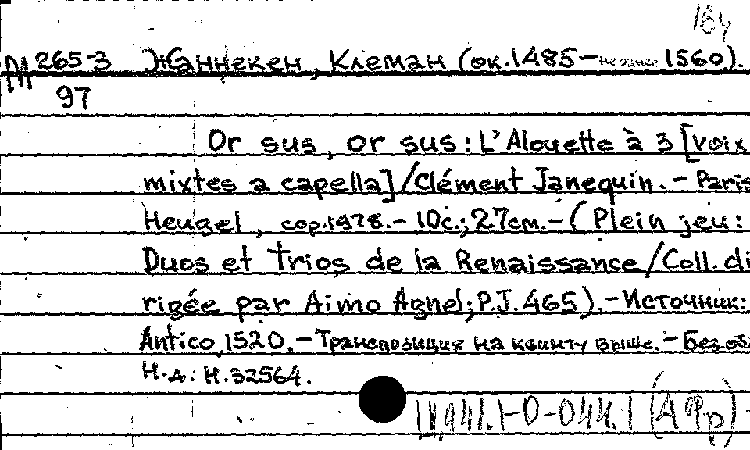 164
М 265-3 Жаннекен, Клеман (ок. 1485 – не ранее 1560).
97
Or sus, or sus: L'Alouette à 3 [voix
mixtes a capella] / Clément Janequin. – Paris
Heugel, cop. 1978. – 10c.; 27cm. – (Plein jeu:
Duos et trios de la Renaissance / Coll. di
rigée par Aimo Agnel; P.J. 465). – Источник:
Antico, 1520. – Транспозиция на квинту выше. – Без об
Н.д.: H.32564.